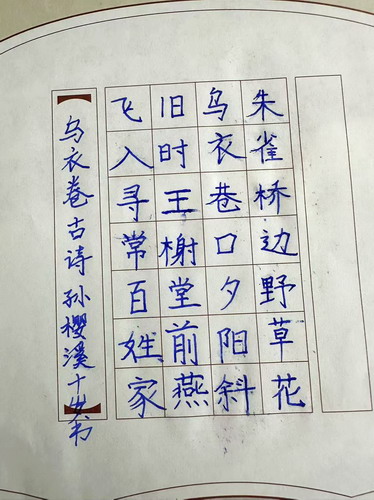 朱雀桥边野草花
乌衣巷口夕阳斜
旧时王榭堂前燕
飞入寻常百姓家
【乌衣卷古诗 孙樱溪十岁书】